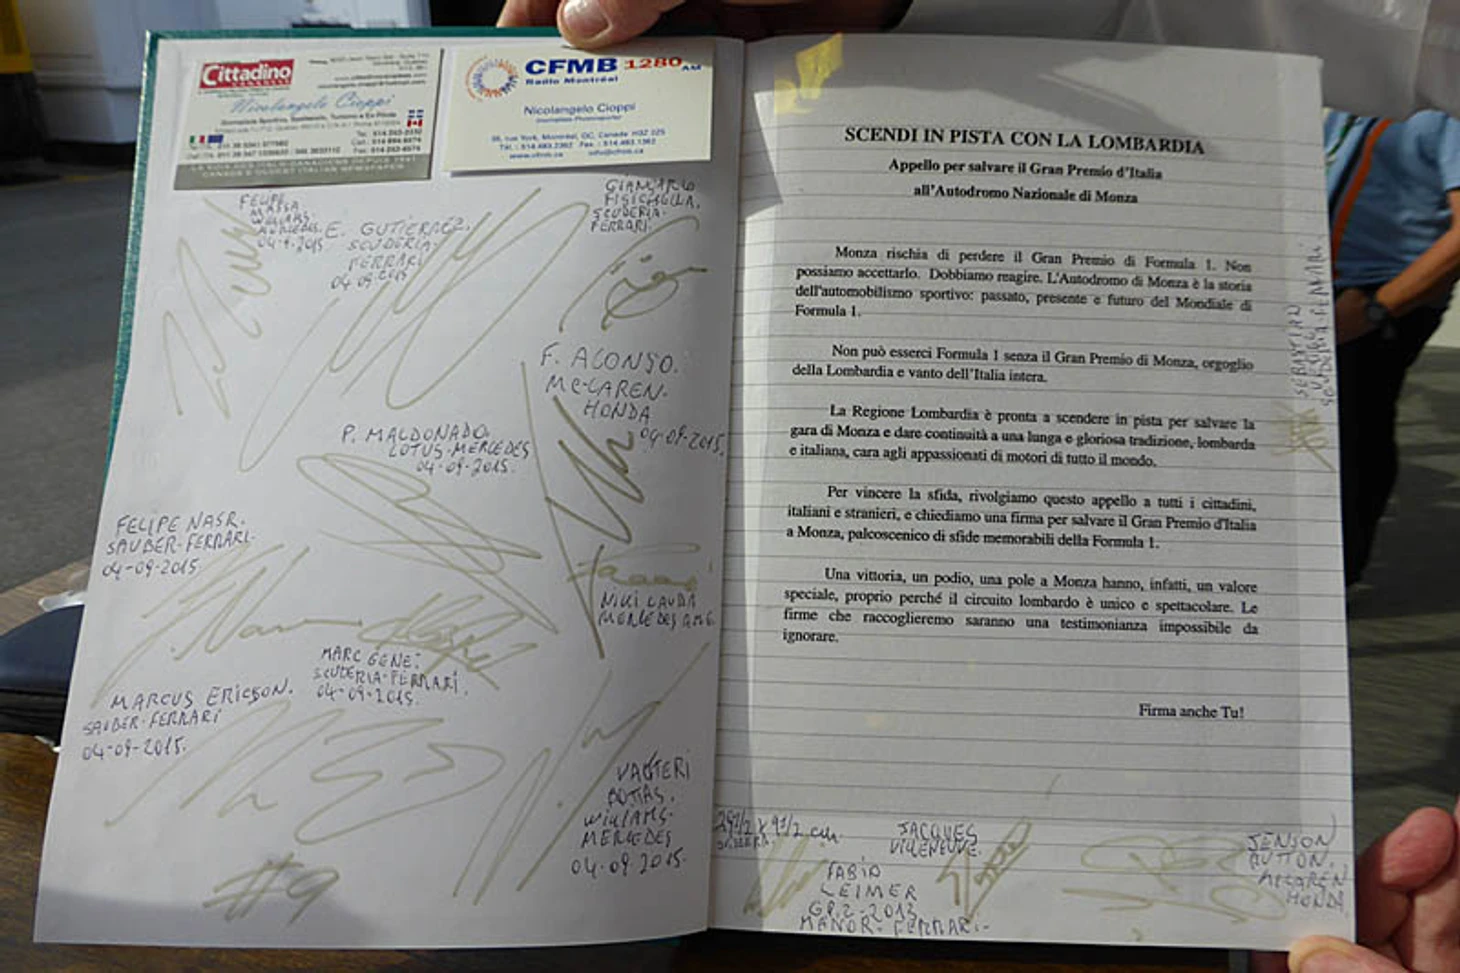 Cittadino
CANADESE
Nicolangelo Cioppi
CFMB 1280 AM
Radio Montréal
Nicolangelo Cioppi
35, rue York, Montréal, QC, Canada H3Z 2Z5
Tél.: 514.483.2362 Fax.: 514.483.1362
www.cfmb.ca info@cfmb.ca
FELIPE
MASSA
WILLIAMS
MERCEDES
04-9-2015
E. GUTIERREZ.
SCUDERIA
FERRARI
04-09-2015
GIANCARLO
FISICHELLA.
SCUDERIA-
FERRARI.
F. ALONSO.
McLAREN-
HONDA
04-09-2015.
P. MALDONADO
LOTUS-MERCEDES
04-09-2015.
FELIPE NASR.
SAUBER-FERRARI.
04-09-2015
NIKI LAUDA
MERCEDES AMG.
MARC GENE.
SCUDERIA-FERRARI.
04-09-2015.
MARCUS ERICSON.
SAUBER-FERRARI
04-09-2015.
VALTERI
BOTTAS.
WILLIAMS-
MERCEDES
04-09-2015.
#9
SCENDI IN PISTA CON LA LOMBARDIA
Appello per salvare il Gran Premio d'Italia
all'Autodromo Nazionale di Monza
Monza rischia di perdere il Gran Premio di Formula 1. Non
possiamo accettarlo. Dobbiamo reagire. L'Autodromo di Monza è la storia
dell'automobilismo sportivo: passato, presente e futuro del Mondiale di
Formula 1.
Non può esserci Formula 1 senza il Gran Premio di Monza, orgoglio
della Lombardia e vanto dell'Italia intera.
La Regione Lombardia è pronta a scendere in pista per salvare la
gara di Monza e dare continuità a una lunga e gloriosa tradizione, lombarda
e italiana, cara agli appassionati di motori di tutto il mondo.
Per vincere la sfida, rivolgiamo questo appello a tutti i cittadini,
italiani e stranieri, e chiediamo una firma per salvare il Gran Premio d'Italia
a Monza, palcoscenico di sfide memorabili della Formula 1.
Una vittoria, un podio, una pole a Monza hanno, infatti, un valore
speciale, proprio perché il circuito lombardo è unico e spettacolare. Le
firme che raccoglieremo saranno una testimonianza impossibile da
ignorare.
Firma anche Tu!
SEBASTIAN
VETTEL
SCUDERIA FERRARI
JACQUES
VILLENEUVE.
FABIO
LEIMER
GP.2-2013
MANOR-FERRARI-
JENSON
BUTTON.
McLAREN
HONDA.